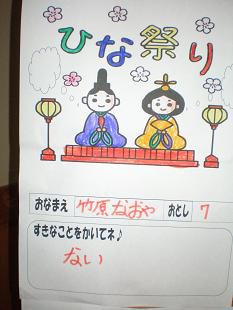 ひな祭り
おなまえ 竹原なおや おとし 7
すきなことをかいてネ♪
ない